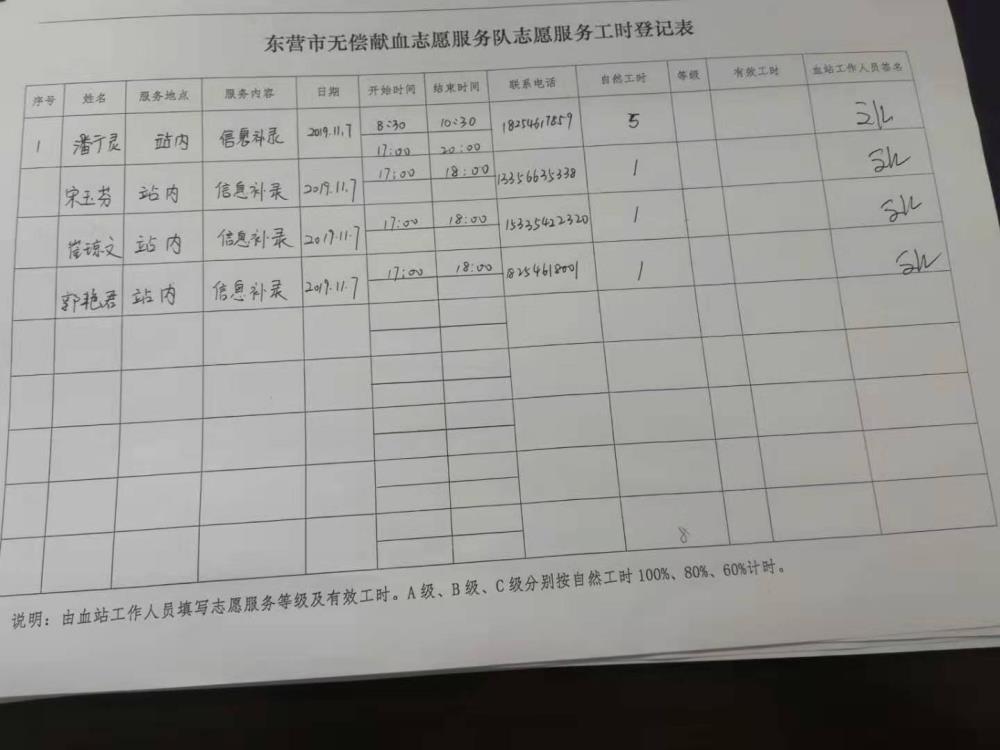 东营市无偿献血志愿服务队志愿服务工时登记表
序号 姓名 服务地点 服务内容 日期 开始时间 结束时间 联系电话 自然工时 等级 有效工时 血站工作人员签名
1 潘广灵 站内 信息补录 2019.11.7 8:30 10:30 18254617859 5
17:00 20:00
宋玉芬 站内 信息补录 2019.11.7 17:00 18:00 13356635338 1
崔琼文 站内 信息补录 2019.11.7 17:00 18:00 15335422320 1
郭艳君 站内 信息补录 2019.11.7 17:00 18:00 18254618001 1
8
说明：由血站工作人员填写志愿服务等级及有效工时。A级、B级、C级分别按自然工时100%、80%、60%计时。